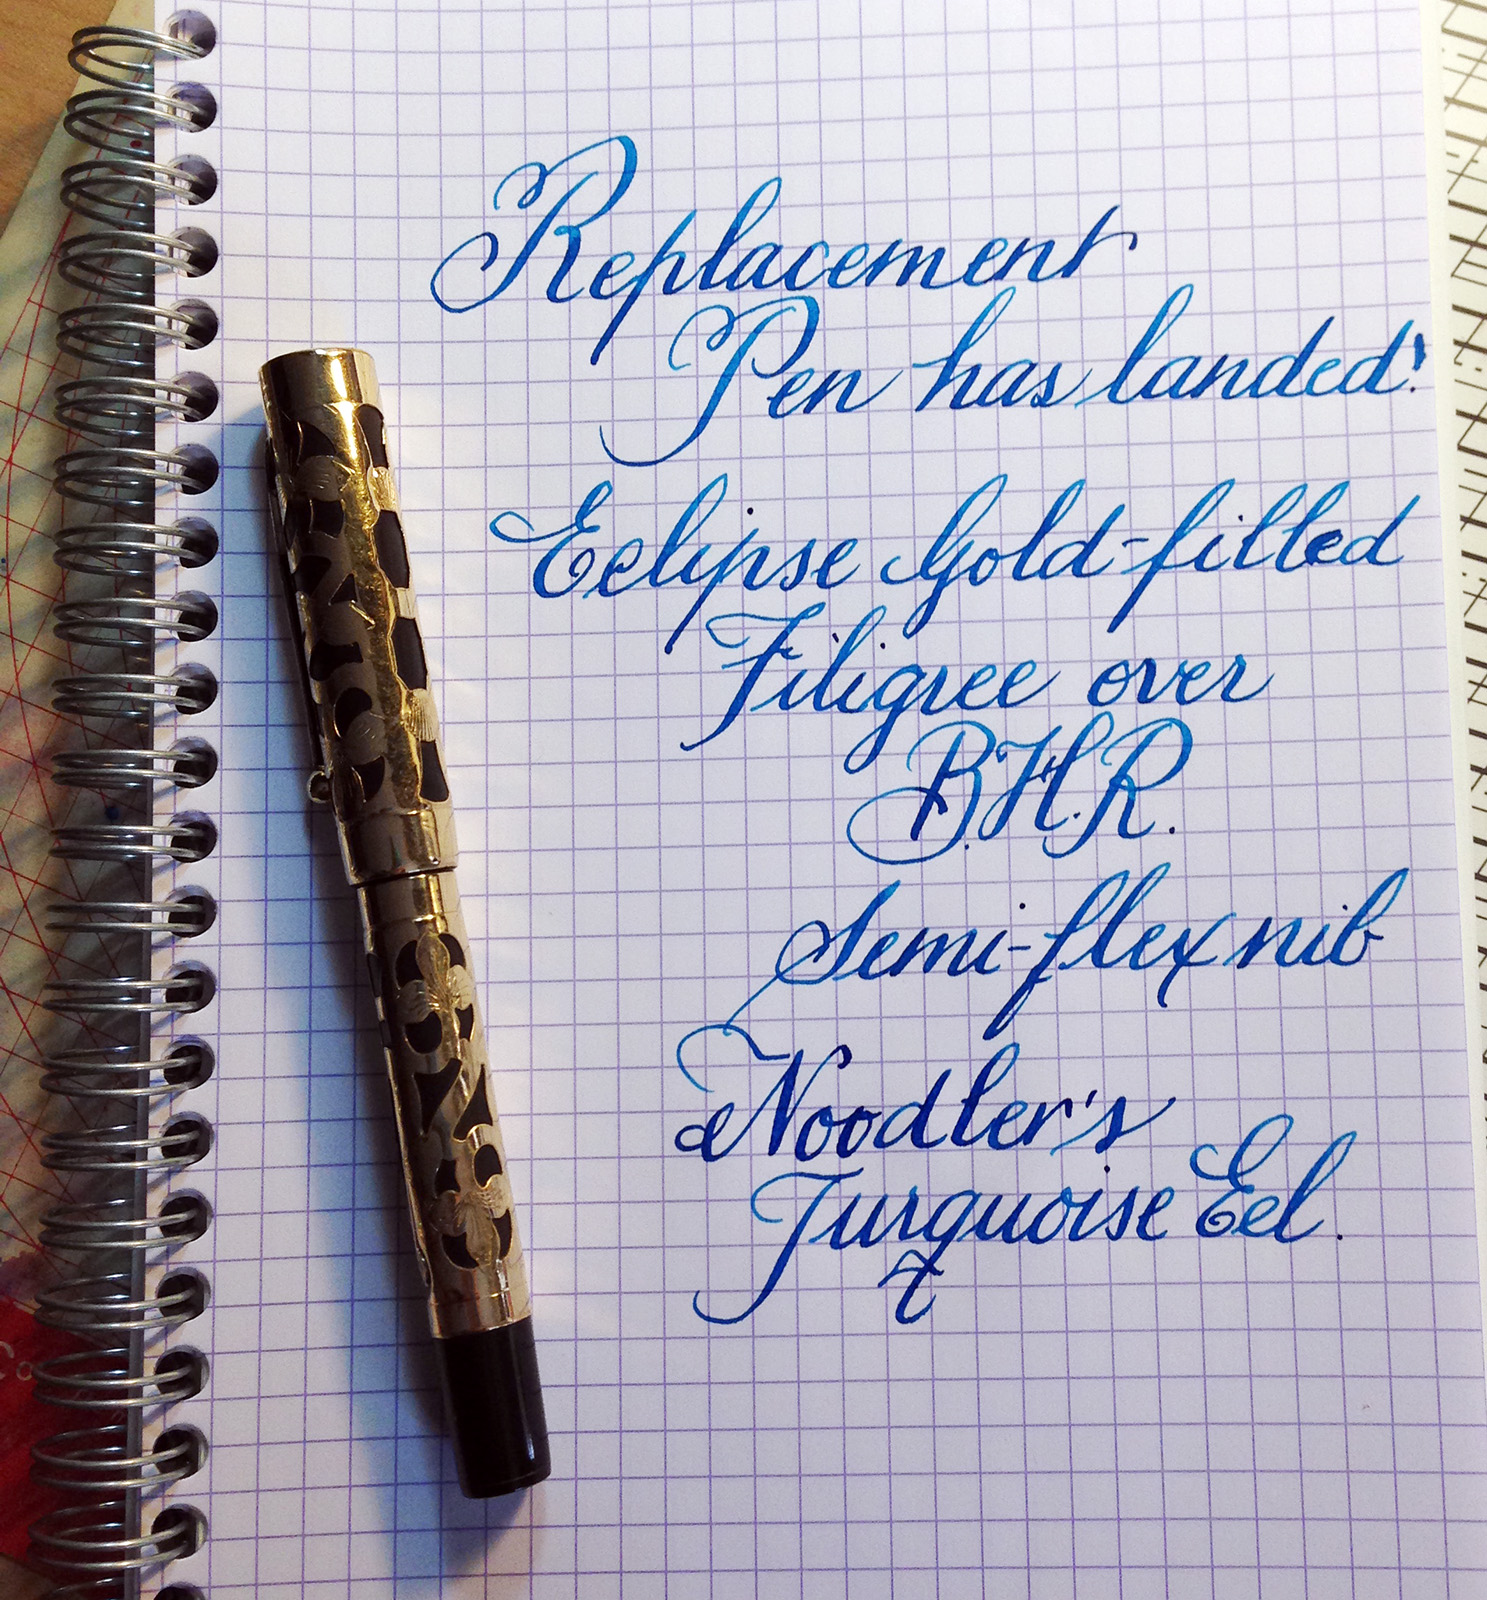 Replacement
Pen has landed!
Eclipse Gold-filled
Filigree over
B.H.R.
Semi-flex nib
Noodler's
Turquoise Eel.